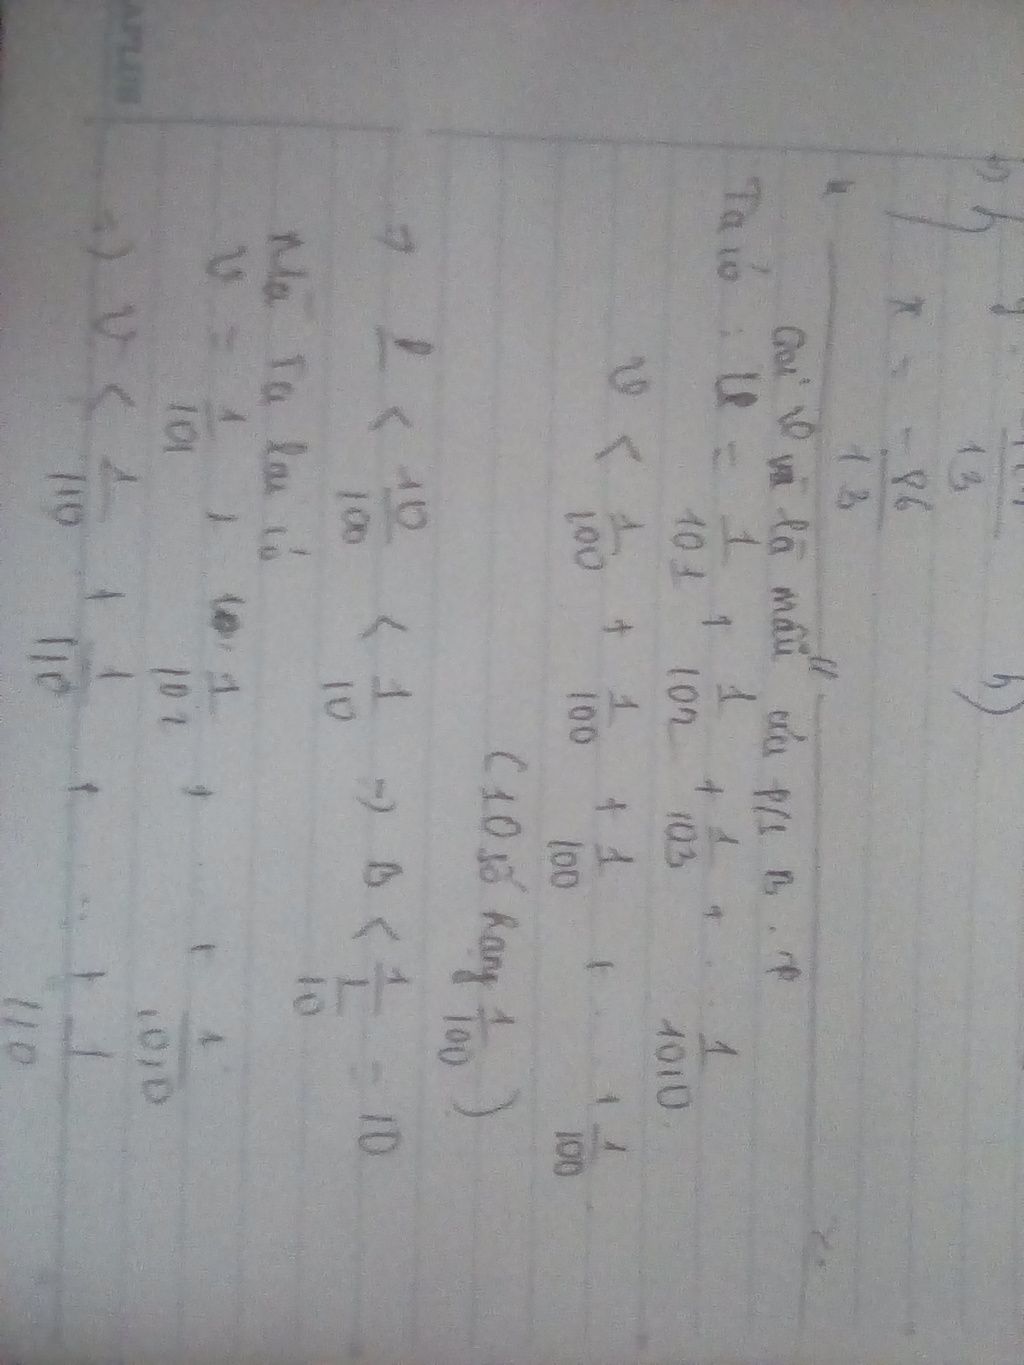 x = -86/13
Gọi v là mẫu của p/s B.
Ta có : v = 1/101 + 1/102 + 1/103 + .. 1/1010
v < 1/100 + 1/100 + 1/100 + .. + 1/100
(10 số hạng 1/100)
=> v < 10/100 < 1/10 => B < 1/(1/10) = 10
Mà Ta lại có
v = 1/101 + 1/102 + + 1/1010
=> v < 1/110 + 1/110 + ... + 1/110